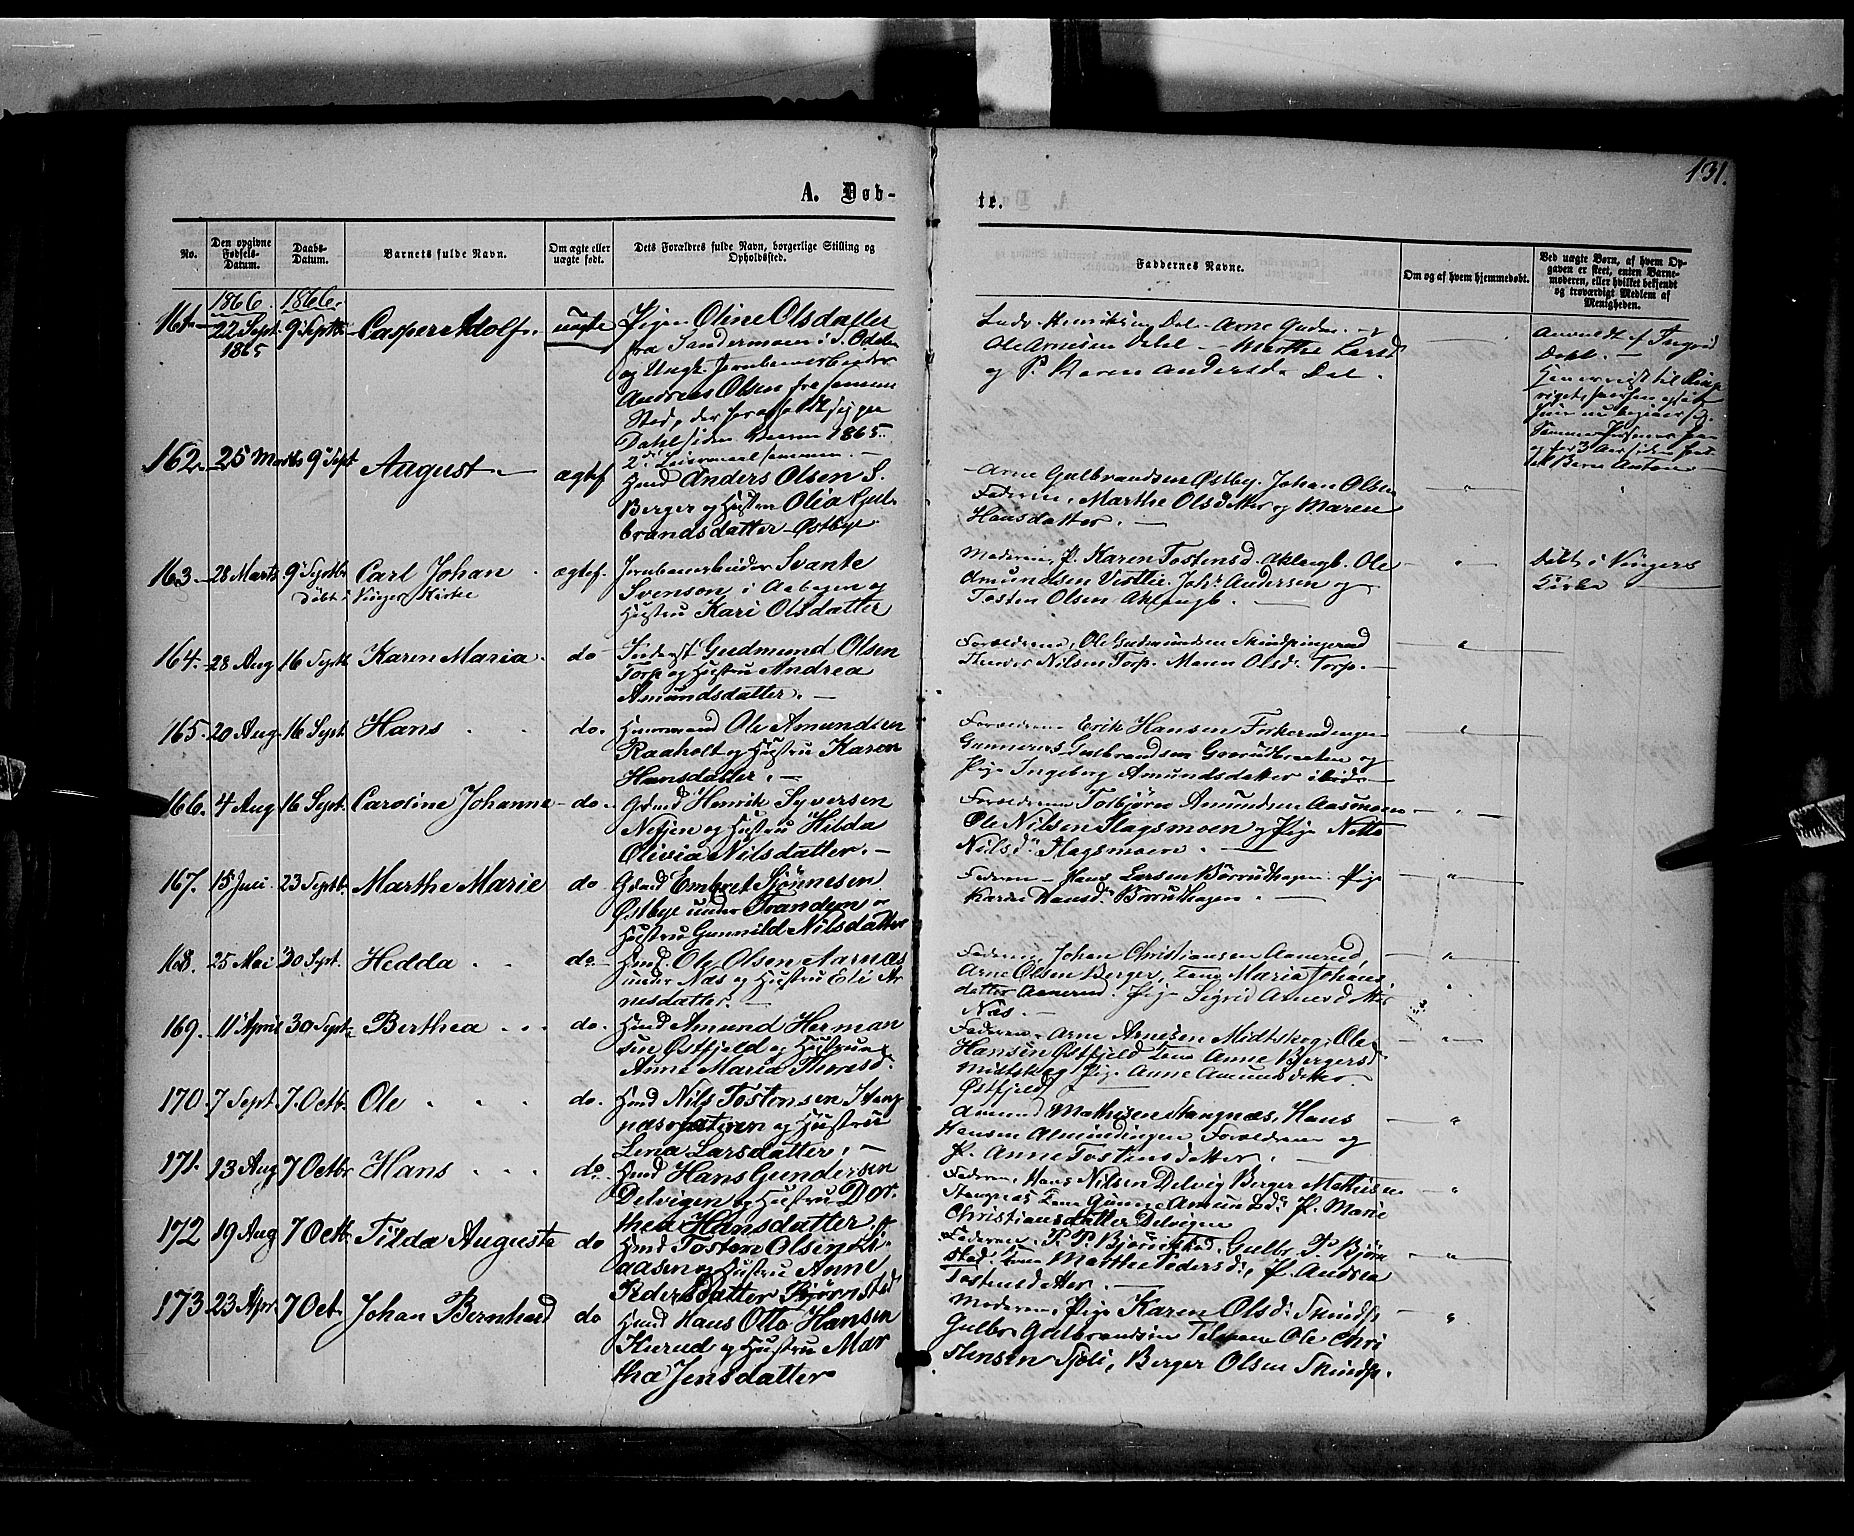 131.
A. Døb-
te.
No.
Den opgivne Fødsels-Datum.
Daabs-Datum.
Barnets fulde Navn.
Om ægte eller uægte født.
Dets Forældres fulde Navn, borgerlige Stilling og Opholdssted.
Faddernes Navne.
Om og af hvem hjemmedøbt.
Ved uægte Børn, af hvem Op-
gaven er skeet, enten Barne-
moderen, eller hvilket bekjendt
og troværdigt Medlem af
Menigheden.
1866. 1866.
161. 22 Sept. 1865 9 Septb. Casper Adolf. uægte Pige Oline Olsdatter
fra Sandermoen i S. Odalen
og Ungk. Jernbanearbeider
Andreas Olsen fra samme
Sted, der
Dahl siden 1865.
2det Leiermaal sammen.
Ole Arnesen Marthe
og P. Karen Andersd. Dal.
Anmeldt af Ingrid
Dahl.
162. 25 Marts 9 Sept August ægtef. Hmd Anders Olsen S.
Berger og Hustru Olia Gul-
brandsdatter Østbye
Arne Gulbrandsen Østby, Johan Olsen
Faderen, Marthe Olsdatter og Maren
Hansdatter.
163. 28 Marts 9 Septbr. Carl Johan ægtef. Jernbanearbeider Svante
Døbt i Vinger Kirke
Svensen i Aabogen og
Hustru Kari Olsdatter
Moderen, P. Karen Tostensd. Aklangb. Ole
Amundsen Joh. Andersen og
Tosten Olsen Aklangb.
Døbt i Vingers
Kirke
164. 28 Aug 16 Septb. Karen Maria do Gudmund Olsen
Torp og Hustru Andrea
Amundsdatter.
Forældrene, Ole Gudmundsen
Nilsen Torp. Maren Olsd. Torp.
165. 20 Aug 16 Sept Hans do. Huusmand Ole Amundsen
Raaholt og Hustru Karen
Hansdatter.
Forældrene Erik Hansen
Gunnerus Gulbrandsen og
Pige Ingeborg Amundsdatter ibid.
166. 4 Aug 16 Sept. Caroline Johanne do. Gbmd Henrik Syversen
og Hustru Hilda
Olivia Nilsdatter.
Forældrene Torbjørn Amundsen Aasmoen
Ole Nilsen Flagsmoen og Pige Netta
Nilsd. Flagsmoen.
167. 15 Juni 23 Septb. Marthe Marie do Gbmd Embret Sjønnesen
Østbye under Trandem og
Hustru Gunnild Nilsdatter
Faderen Hans Larsen Børrudhagen. Pige
Karen Hansd. Børrudhagen.
168. 25 Mai 30 Sept. Hedda do. Hmd Ole Olsen Aarnæs
under Næs og Hustru Eli Ar-
nesdatter.
Faderen, Johan Christiansen Aanerud,
Arne Olsen Berger, Kone Maria Johans-
datter Aanerud. Pige Sigrid Arnesdatter
Næs.
169. 11 April 30 Septb. Berthea do. Hmd Amund Herman-
sen Østfjeld og Hustru
Anne Maria Iversd.
Faderen Arne Arnesen Midtskog, Ole
Hansen Østfjeld Kone Anne Bergersd.
Midtskog Pige Anne Amundsdatter
Østfjeld
170. 7 Sept. 7. Octb. Ole do. Hmd Nils Tostensen Stang-
næsodteren og Hustru
Lena Larsdatter.
Amund Mathisen Stangnæs, Hans
Hansen Almindingen Forældrene og
P. Anne Tostensdatter.
171. 13 Aug 7 Octbr Hans do. Hmd Hans Gundersen
Delvigen og Hustru Dor-
thea Hansdatter.
Faderen, Hans Nilsen Delvig Berger Mathisen
Stangnæs Kone Gunne Amundsd. P. Marie
Christiansdatter Delvigen
172 19 Aug 7 Octb. Tilda Auguste do Hmd Tosten Olsen
og Hustru Anne
Pedersdatter Bjørnstad
Faderen, P. P. Bjørnstad, Gulbr. P. Bjørn-
stad. Kone Marthe Pedersd., P. Andrea
Tostensdatter.
173 23 Apr. 7 Oct. Johan Bernhard do Hmd Hans Otto Hansen
Kurud og Hustru Mar-
tha Jensdatter
Moderen, Pige Karen Olsd. Skindp.
Gulbr. Gulbrandsen Ole Chri-
stensen Sjøli, Berger Olsen Skindp.